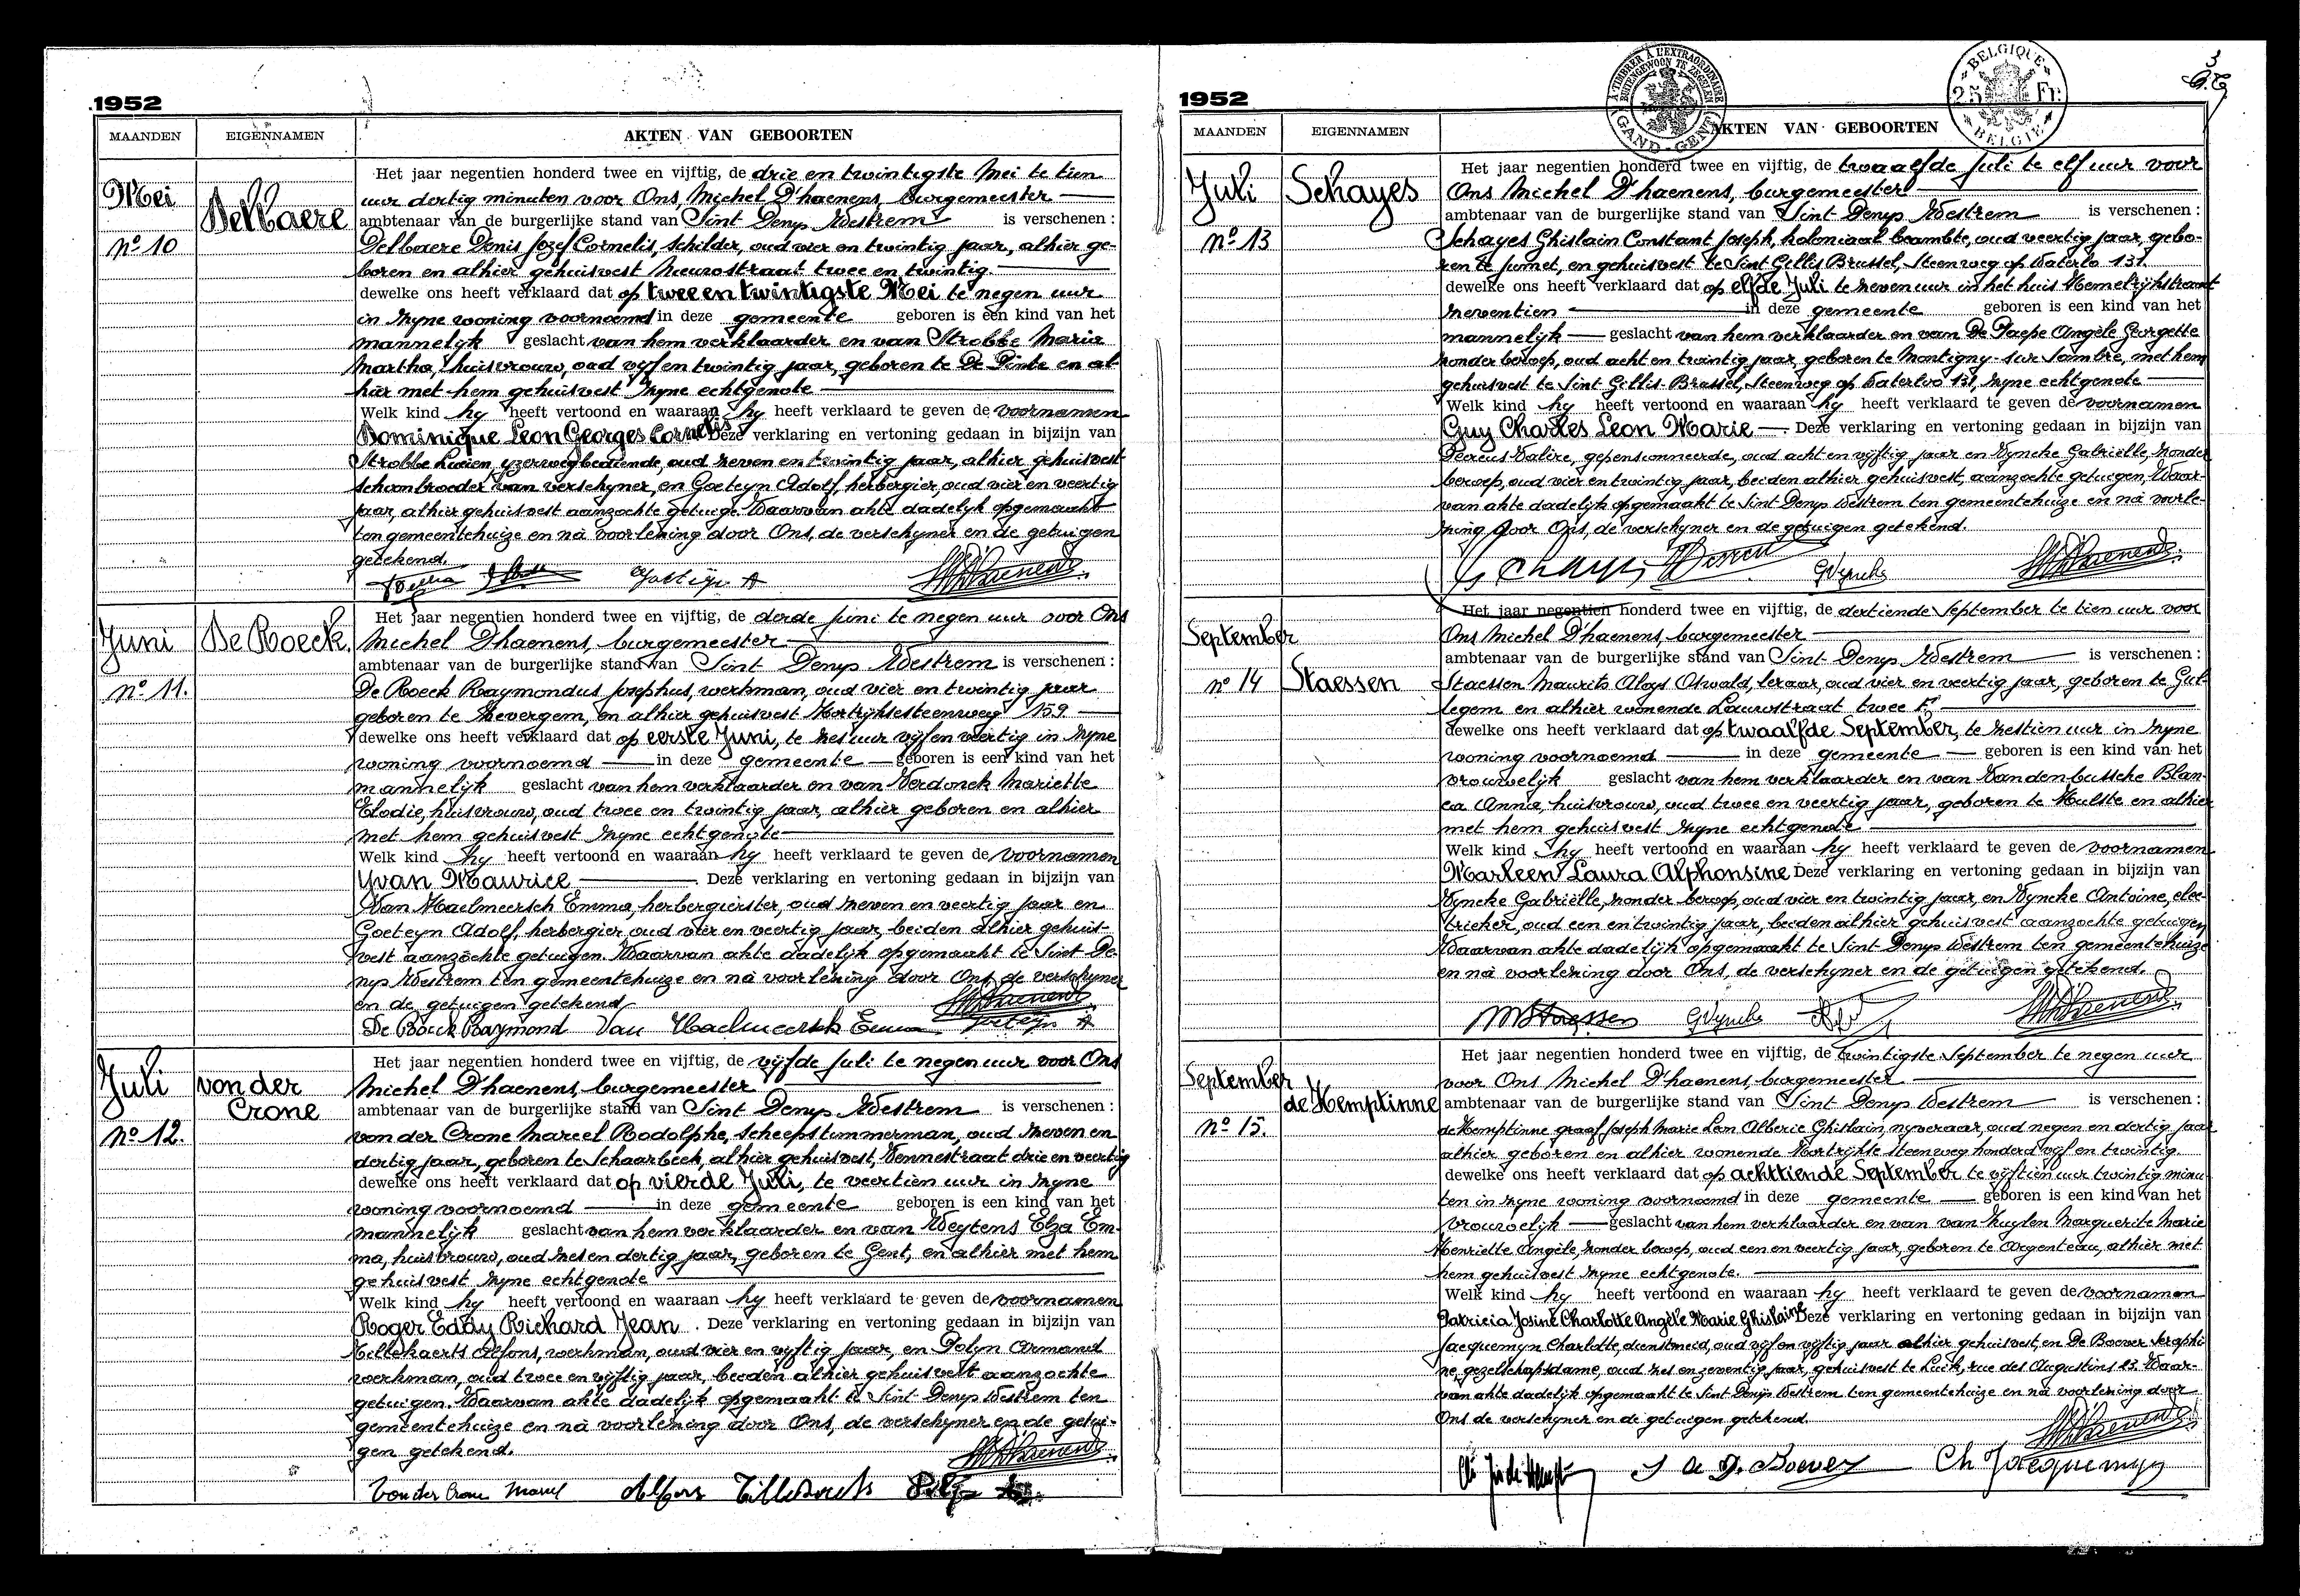 1952
MAANDEN EIGENNAMEN AKTEN VAN GEBOORTEN
Mei
Delbaere
nº 10
Het jaar negentien honderd twee en vijftig, de drie en twintigste Mei te tien
uur dertig minuten voor Ons, Michel D'haenens, burgemeester
ambtenaar van de burgerlijke stand van Sint Denys Westrem is verschenen :
Delbaere Denis Jozef Cornelis, schilder, oud vier en twintig jaar, alhier ge-
boren en alhier gehuisvest Nieuwstraat twee en twintig.
dewelke ons heeft verklaard dat op twee en twintigste Mei te negen uur
in zyne woning voornoemd in deze gemeente geboren is een kind van het
mannelyk geslacht van hem verklaarder en van Strobbe Maria
Martha, huisvrouw, oud vyf en twintig jaar, geboren te De Pinte en al-
hier met hem gehuisvest zyne echtgenote
Welk kind hy heeft vertoond en waaraan hy heeft verklaard te geven de voornamen
Dominique Leon Georges Cornelis Deze verklaring en vertoning gedaan in bijzijn van
Strobbe Lucien, yzerwegbediende, oud zeven en twintig jaar, alhier gehuisvest
schoonbroeder van verschyner, en Goeteyn Adolf, herbergier, oud vier en veertig
jaar, alhier gehuisvest aanzochte getuige. Waarvan akte dadelyk opgemaakt
ten gemeentehuize en nà voorlezing door Ons, de verschyner en de getuigen
getekend.
Goeteyn A
Juni
De Roeck.
nº 11.
Het jaar negentien honderd twee en vijftig, de derde juni te negen uur voor Ons
Michel D'haenens, burgemeester
ambtenaar van de burgerlijke stand van Sint Denys Westrem is verschenen :
De Roeck Raymondus Josephus, werkman, oud vier en twintig jaar
geboren te Zevergem, en alhier gehuisvest Kortrijksesteenweg 159
dewelke ons heeft verklaard dat op eerste Juni, te zes uur vijf en veertig in zyne
woning voornoemd in deze gemeente geboren is een kind van het
mannelijk geslacht van hem verklaarder en van Verdonck Mariette
Elodie, huisvrouw, oud twee en twintig jaar, alhier geboren en alhier
met hem gehuisvest zyne echtgenote
Welk kind hy heeft vertoond en waaraan hy heeft verklaard te geven de voornamen
Yvan Maurice . Deze verklaring en vertoning gedaan in bijzijn van
Van Haelmeersch Emma, herbergierster, oud zeven en veertig jaar en
Goeteyn Adolf, herbergier, oud vier en veertig jaar, beiden alhier gehuis-
vest aanzochte getuigen. Waarvan akte dadelijk opgemaakt te Sint De-
nys Westrem ten gemeentehuize en nà voorlezing door Ons, de verschyner
en de getuigen getekend.
De Roeck Raymond Van Haelmeersch Emma Goeteyn A
Juli
von der
Crone
nº 12.
Het jaar negentien honderd twee en vijftig, de vijfde juli te negen uur voor Ons
Michel D'haenens, burgemeester
ambtenaar van de burgerlijke stand van Sint Denys Westrem is verschenen :
von der Crone Marcel Rodolphe, scheepstimmerman, oud zeven en
dertig jaar, geboren te Schaarbeek, alhier gehuisvest, Vennestraat drie en veertig
dewelke ons heeft verklaard dat op vierde Juli, te veertien uur in zyne
woning voornoemd in deze gemeente geboren is een kind van het
mannelijk geslacht van hem verklaarder en van Weytens Elza Em-
ma, huisvrouw, oud zes en dertig jaar, geboren te Gent, en alhier met hem
gehuisvest zyne echtgenote
Welk kind hy heeft vertoond en waaraan hy heeft verklaard te geven de voornamen
Roger Eddy Richard Jean . Deze verklaring en vertoning gedaan in bijzijn van
Tillekaerts Alfons, werkman, oud vier en vyftig jaar, en Polyn Armand
werkman, oud twee en vyftig jaar, beiden alhier gehuisvest aanzochte
getuigen. Waarvan akte dadelijk opgemaakt te Sint Denys Westrem ten
gemeentehuize en nà voorlezing door Ons, de verschyner en de getui-
gen getekend.
Von der Crone Marcel Alfons
1952
À TIMBRER À L'EXTRAORDINAIRE
BUITENGEWOON TE ZEGELEN
GAND - GENT
BELGIQUE
25 Fr.
BELGIË
3
MAANDEN EIGENNAMEN AKTEN VAN GEBOORTEN
Juli
Schayes
nº 13
Het jaar negentien honderd twee en vijftig, de twaalfde juli te elf uur voor
Ons Michel D'haenens, burgemeester
ambtenaar van de burgerlijke stand van Sint Denys Westrem is verschenen :
Schayes Ghislain Constant Joseph, koloniaal beambte, oud veertig jaar, gebo-
ren te Jumet, en gehuisvest te Sint Gillis Brussel, Steenweg op Waterlo 131.
dewelke ons heeft verklaard dat op elfde Juli te zeven uur in het huis Hemelrijkstraat
zeventien in deze gemeente geboren is een kind van het
mannelyk geslacht van hem verklaarder en van De Paepe Angèle Georgette
zonder beroep, oud acht en twintig jaar, geboren te Montigny-sur Sambre, met hem
gehuisvest te Sint Gillis-Brussel, Steenweg op Waterloo 131, zyne echtgenote
Welk kind hy heeft vertoond en waaraan hy heeft verklaard te geven de voornamen
Guy Charles Leon Marie . Deze verklaring en vertoning gedaan in bijzijn van
Valère, gepensionneerde, oud acht en vyftig jaar en Vyncke Gabriëlle, zonder
beroep, oud vier en twintig jaar, beiden alhier gehuisvest, aanzochte getuigen, Waar-
van akte dadelijk opgemaakt te Sint Denys Westrem ten gemeentehuize en nà voorle-
zing door Ons, de verschyner en de getuigen getekend.
GVyncke
September
nº 14
Staessen
Het jaar negentien honderd twee en vijftig, de dertiende September te tien uur voor
Ons Michel D'haenens, burgemeester
ambtenaar van de burgerlijke stand van Sint Denys Westrem is verschenen :
Staessen Maurits Aloys Oswald, leraar, oud vier en veertig jaar, geboren te Gul-
legem en alhier wonende Lauwstraat twee
dewelke ons heeft verklaard dat op twaalfde September, te zestien uur in zyne
woning voornoemd in deze gemeente geboren is een kind van het
vrouwelijk geslacht van hem verklaarder en van Vandenbussche Blan-
ca Anna, huisvrouw, oud twee en veertig jaar, geboren te Hulste en alhier
met hem gehuisvest zyne echtgenote
Welk kind hy heeft vertoond en waaraan hy heeft verklaard te geven de voornamen
Marleen Laura Alphonsine Deze verklaring en vertoning gedaan in bijzijn van
Vyncke Gabriëlle, zonder beroep, oud vier en twintig jaar, en Vyncke Antoine, elec-
tricker, oud een en twintig jaar, beiden alhier gehuisvest aanzochte getuigen
Waarvan akte dadelijk opgemaakt te Sint Denys Westrem ten gemeentehuize
en nà voorlezing door Ons, de verschyner en de getuigen getekend.
MStaessen GVyncke
September
de Hemptinne
nº 15.
Het jaar negentien honderd twee en vijftig, de twintigste September te negen uur
voor Ons Michel D'haenens, burgemeester
ambtenaar van de burgerlijke stand van Sint Denys Westrem is verschenen :
de Hemptinne graaf Joseph Marie Leon Alberic Ghislain, nyveraar, oud negen en dertig jaar
alhier geboren en alhier wonende Kortrijkse steenweg honderd vyf en twintig
dewelke ons heeft verklaard dat op achttiende September te vijftien uur twintig minu-
ten in zyne woning voornoemd in deze gemeente geboren is een kind van het
vrouwelijk geslacht van hem verklaarder en van van Zuylen Marguerite Marie
Henriette Angèle, zonder beroep, oud een en veertig jaar, geboren te Argenteau, alhier met
hem gehuisvest zyne echtgenote.
Welk kind hy heeft vertoond en waaraan hy heeft verklaard te geven de voornamen
Patricia Josine Charlotte Angèle Marie Ghislaine Deze verklaring en vertoning gedaan in bijzijn van
Jacquemyn Charlotte, dienstmeid, oud vyf en vyftig jaar alhier gehuisvest, en De Boever Seraphi-
ne, gezelschapsdame, oud zes en zeventig jaar, gehuisvest te Luik, rue des Augustins 23. Waar-
van akte dadelijk opgemaakt te Sint Denijs Westrem ten gemeentehuize en nà voorlezing door
Ons de verschyner en de getuigen getekend.
Boever Ch Jacquemyn